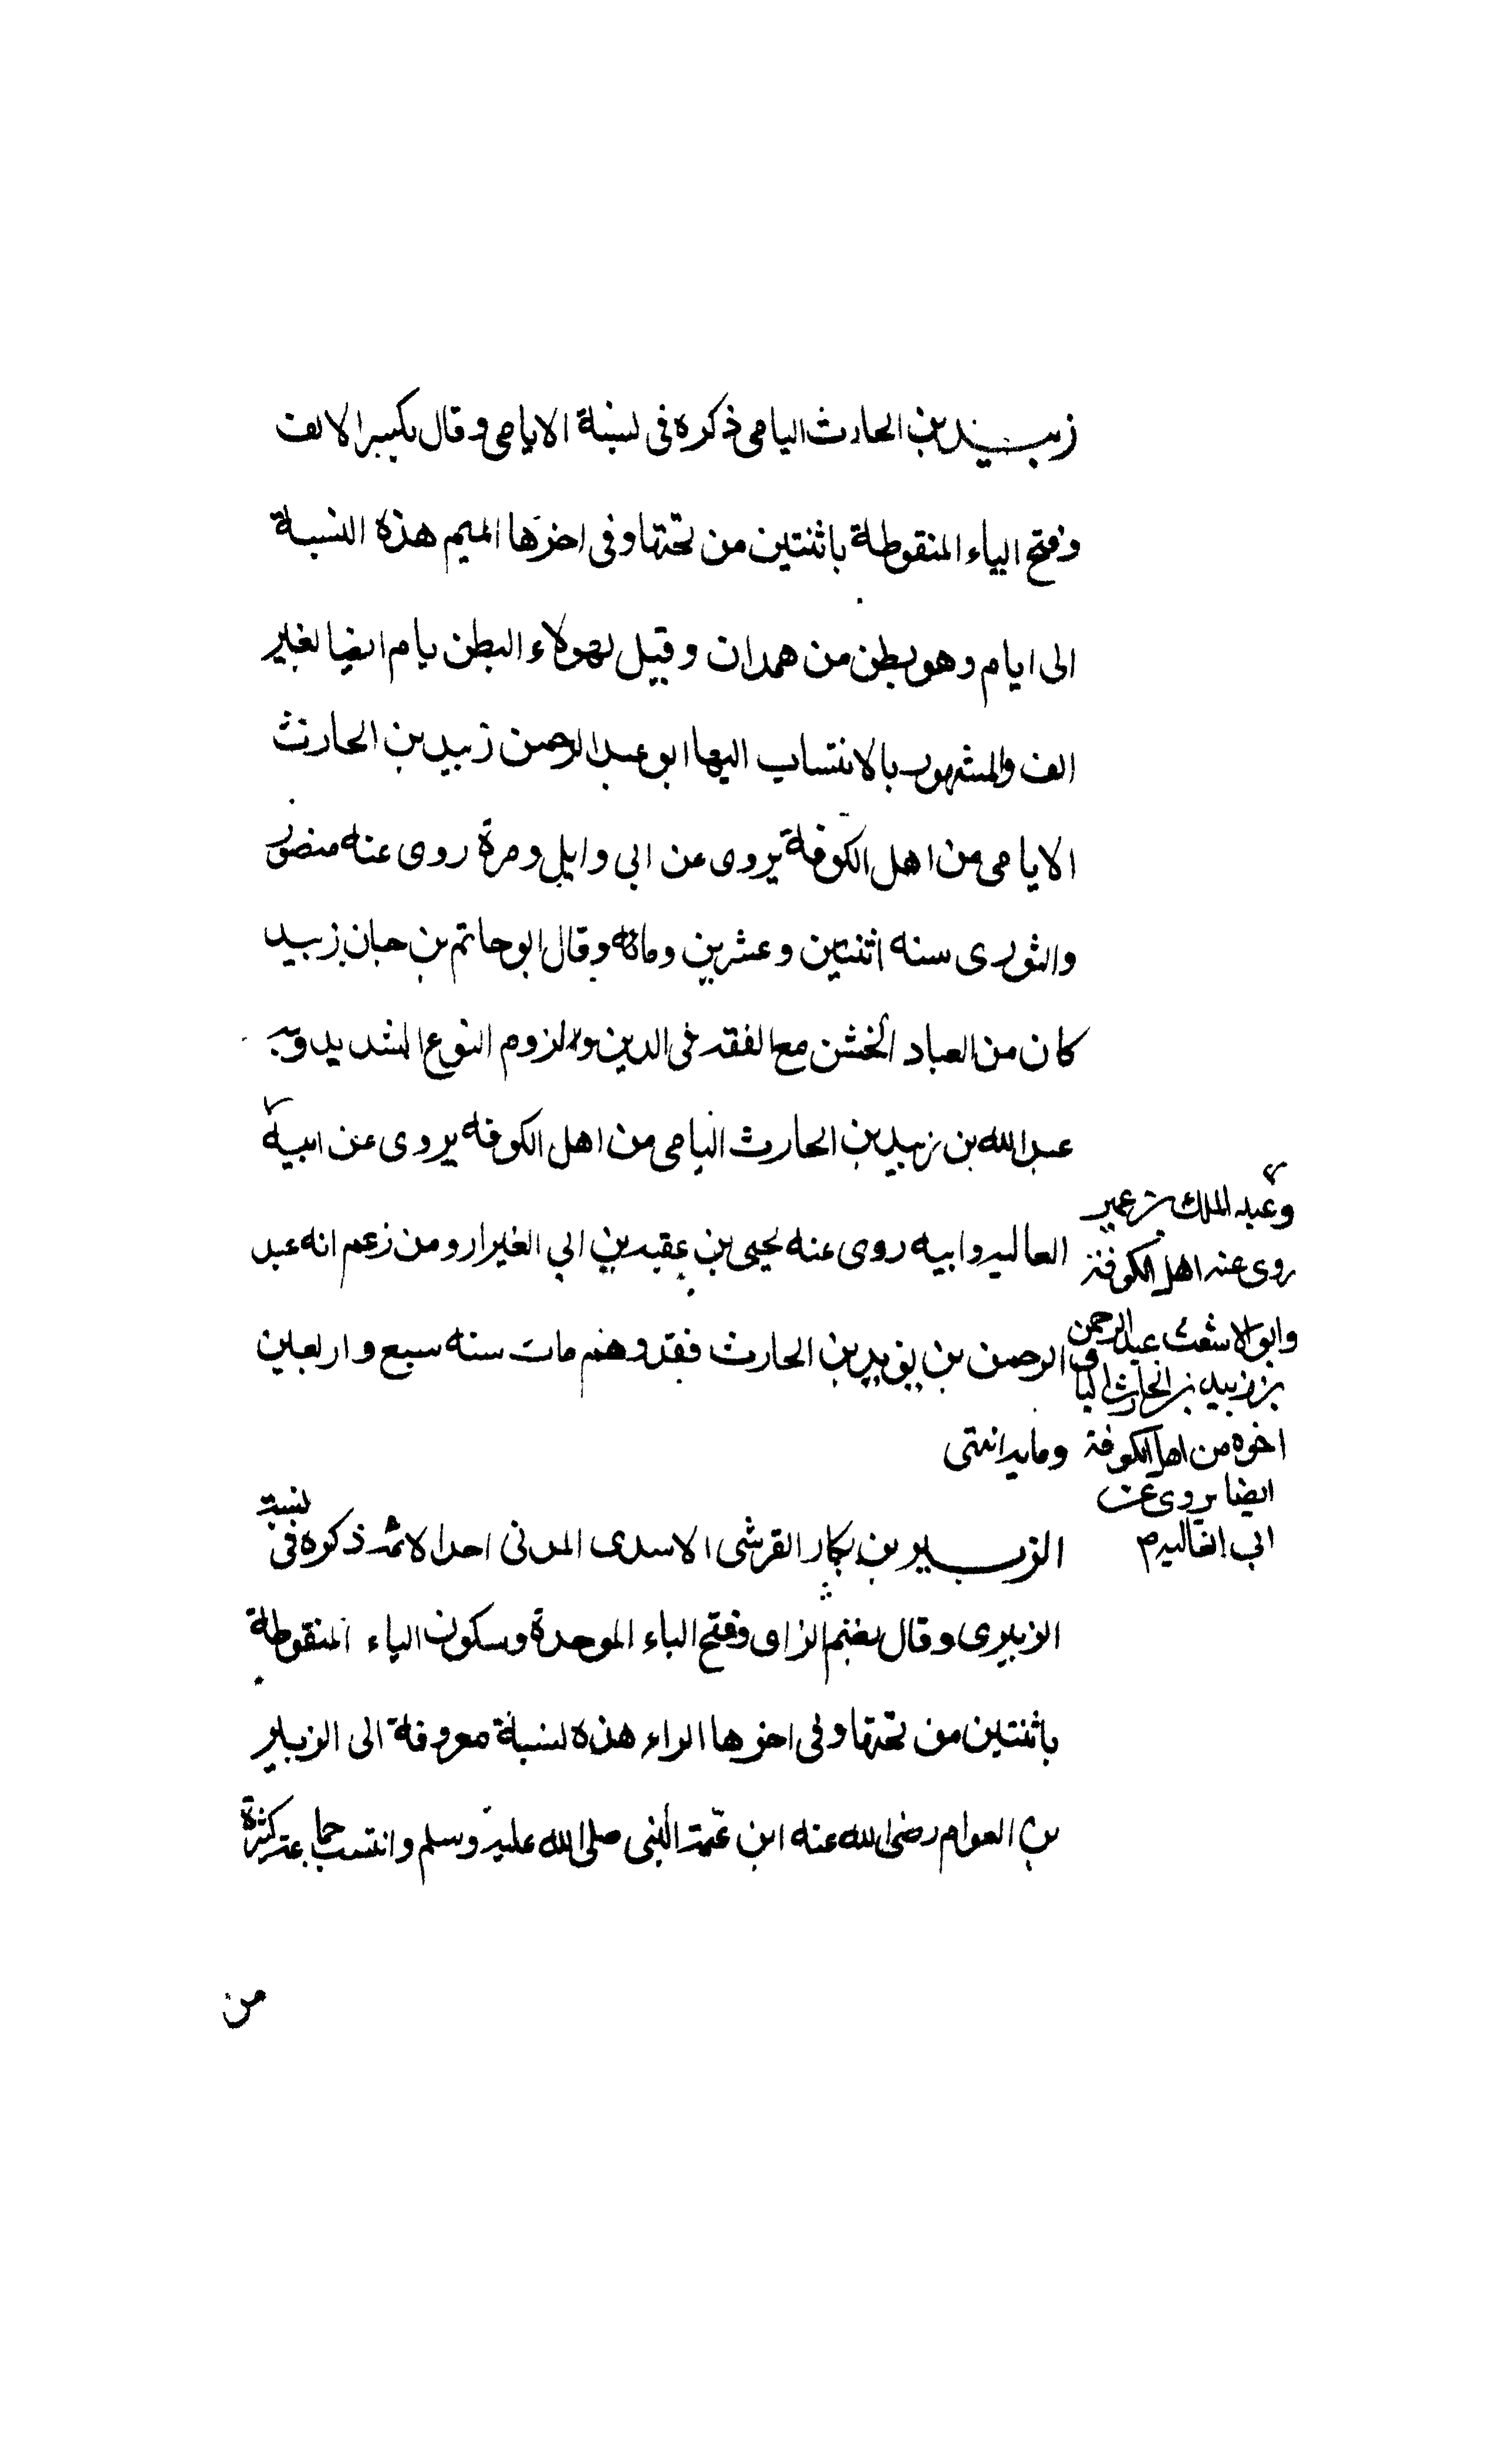 زبيد بن الحارث اليامي ذكره في نسبة الايامي وقال بكسر الالف
وفتح الياء المنقوطة باثنتين من تحتها وفي اخرها الميم هذه النسبة
الى ايام وهو بطن من همدان وقيل لهولاء البطن يام ايضا لغير
الف والمشهور بالانتساب اليها ابو عبد الرحمن زبيد بن الحارث
الايامي من اهل الكوفة يروى عن ابي وايل ومرة روى عنه منصور
والثورى سنه اثنتين وعشرين ومائة وقال ابو حاتم بن حبان زبيد
كان من العباد الخشن مع الفقه في الدين ولزوم الورع الشديد
عبد الله بن زبيد بن الحارث اليامي من اهل الكوفه يروى عن ابيه
وعبد الملك بن عمير
روى عنه اهل الكوفة
وابو الاشعث عبد الرحمن
بن زبيد بن الحارث اليامي
اخوه من اهل الكوفة
ايضا يروى عن
ابي العاليه م
العاليه وابيه روى عنه يحيى بن عقبه بن ابي العيزار ومن زعم انه عبد
الرحمن بن يزيد بن الحارث فقد وهم مات سنه سبع واربعين
ومايه انتهى
الزبير بن بكار القرشى الاسدى المدنى احد الائمه ذكره في نسبة
الزبيرى وقال بضم الزاى وفتح الباء الموحدة وسكون الياء المنقوطة
باثنتين من تحتها وفي اخرها الراء هذه نسبة معروفة الى الزبير
بن العوام رضى الله عنه ابن عمة النبى صلى الله عليه وسلم وانتسب جماعة كثيرة
من